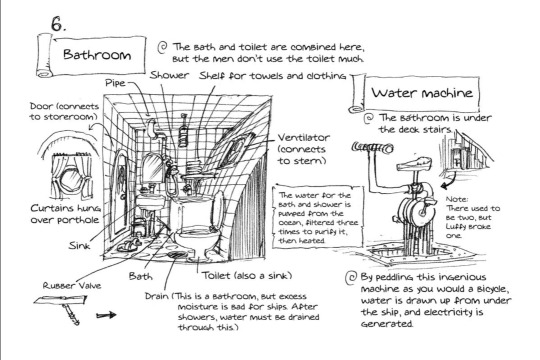 6.
Bathroom
The bath and toilet are combined here,
but the men don't use the toilet much.
Pipe
Shower
Shelf for towels and clothing
Door (connects
to storeroom)
Ventilator
(connects
to stern)
Curtains hung
over porthole
Sink
The water for the
bath and shower is
pumped from the
ocean, filtered three
times to purify it,
then heated.
Rubber Valve
Bath
Toilet (also a sink)
Drain (This is a bathroom, but excess
moisture is bad for ships. After
showers, water must be drained
through this.)
Water machine
The bathroom is under
the deck stairs.
Note:
There used to
be two, but
Luffy broke
one.
By peddling this ingenious
machine as you would a bicycle,
water is drawn up from under
the ship, and electricity is
generated.